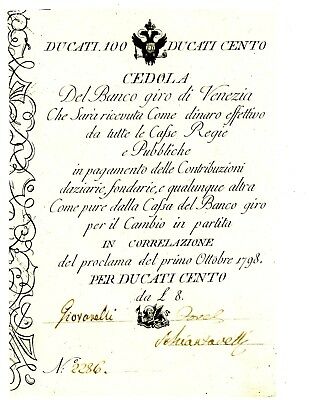 DUCATI. 100 DUCATI CENTO
CEDOLA
Del Banco giro di Venezia
Che Sarà ricevuta Come dinaro effettivo
da tutte le Casse Regie
e Pubbliche
in pagamento delle Contribuzioni
daziarie, fondarie, e qualunque altra
Come pure dalla Cassa del Banco giro
per il Cambio in partita
IN CORRELAZIONE
del proclama del primo Ottobre 1798.
PER DUCATI CENTO
da £ 8.
Giovanelli
N.º 2286.